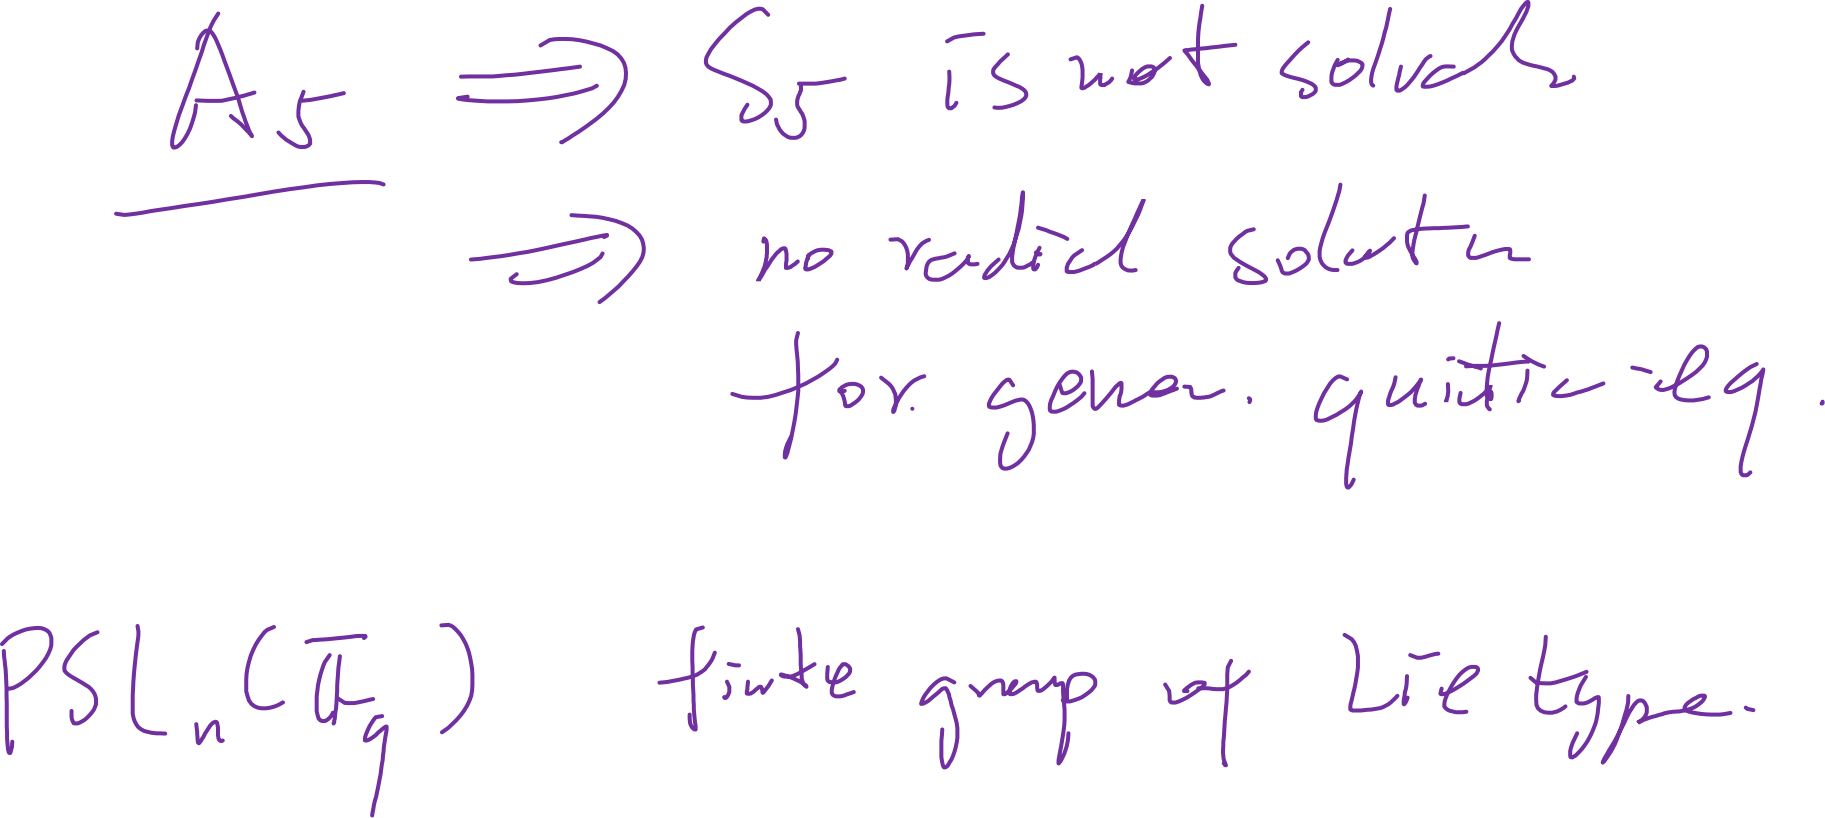 A₅ ⇒ S₅ is not solvab
⇒ no radical solutn
for gener. quintic eq.
PSLₙ(𝔽_q) finite group of Lie type.